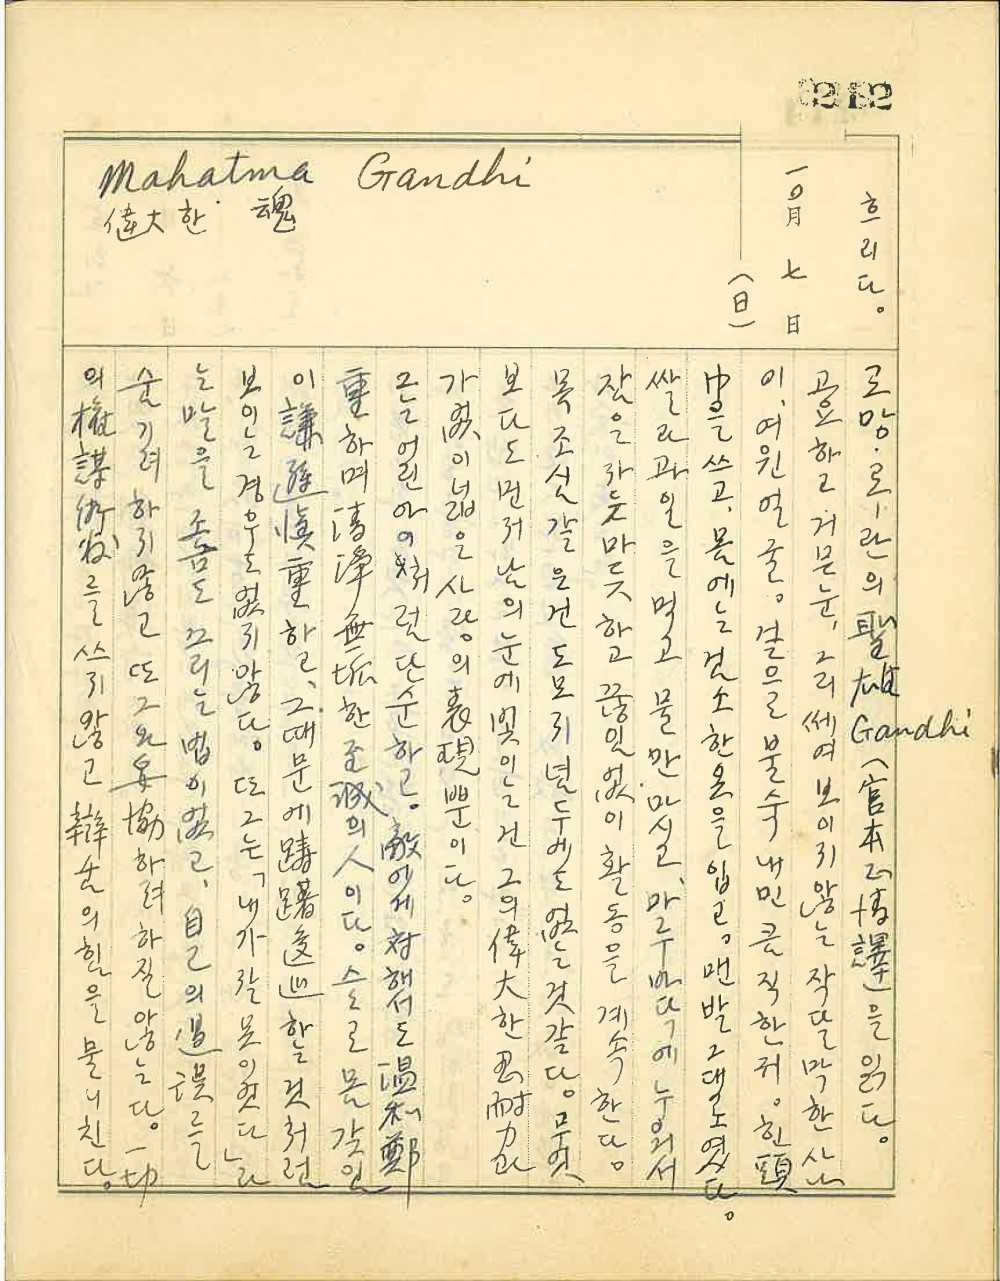 Mahatma Gandhi
偉大한 魂
一〇月 七日
(日)
흐리다.
로망·로-란의 聖雄 Gandhi (宮本正淸譯)을 읽다.
공요하고 거문눈, 그리 쎄여 보이지 않는 작달막한 사나
이, 여윈 얼굴. 겉으로 불숙 내민 큰직한 귀. 힌 頭
巾을 쓰고, 몸에는 검소한 옷을 입고, 맨발 그대로였다.
쌀과 과일을 먹고 물만 마시고, 마루바닥에 누워서
잠을 자는듯 마는듯 하고 끊임없이 활동을 계속한다.
목조심 같은건 도모지 념두에도 없는것 같다. 무엇
보다도 먼저 남의 눈에 띠이는건 그의 偉大한 忍耐力과
가없이 넓은 사랑의 表現뿐이다.
그는 어린아이처럼 단순하고, 敵에게 対해서도 温和鄭
重하며 淸淨無垢한 至誠의 人이다. 스스로 몸갖임
이 謙遜愼重하고, 그때문에 躊躇逡巡 하는 것처럼
보이는 경우도 없지 않다. 또 그는 「내가 잘못이었다」라
는 말을 조곰도 꺼리는 법이 없고, 自己의 過誤를
숨기려 하지 않고 또 그와 妥協하려 하질 않는다. 一切
의 權謀術數를 쓰지 않고 辯舌의 힘을 물니친다.